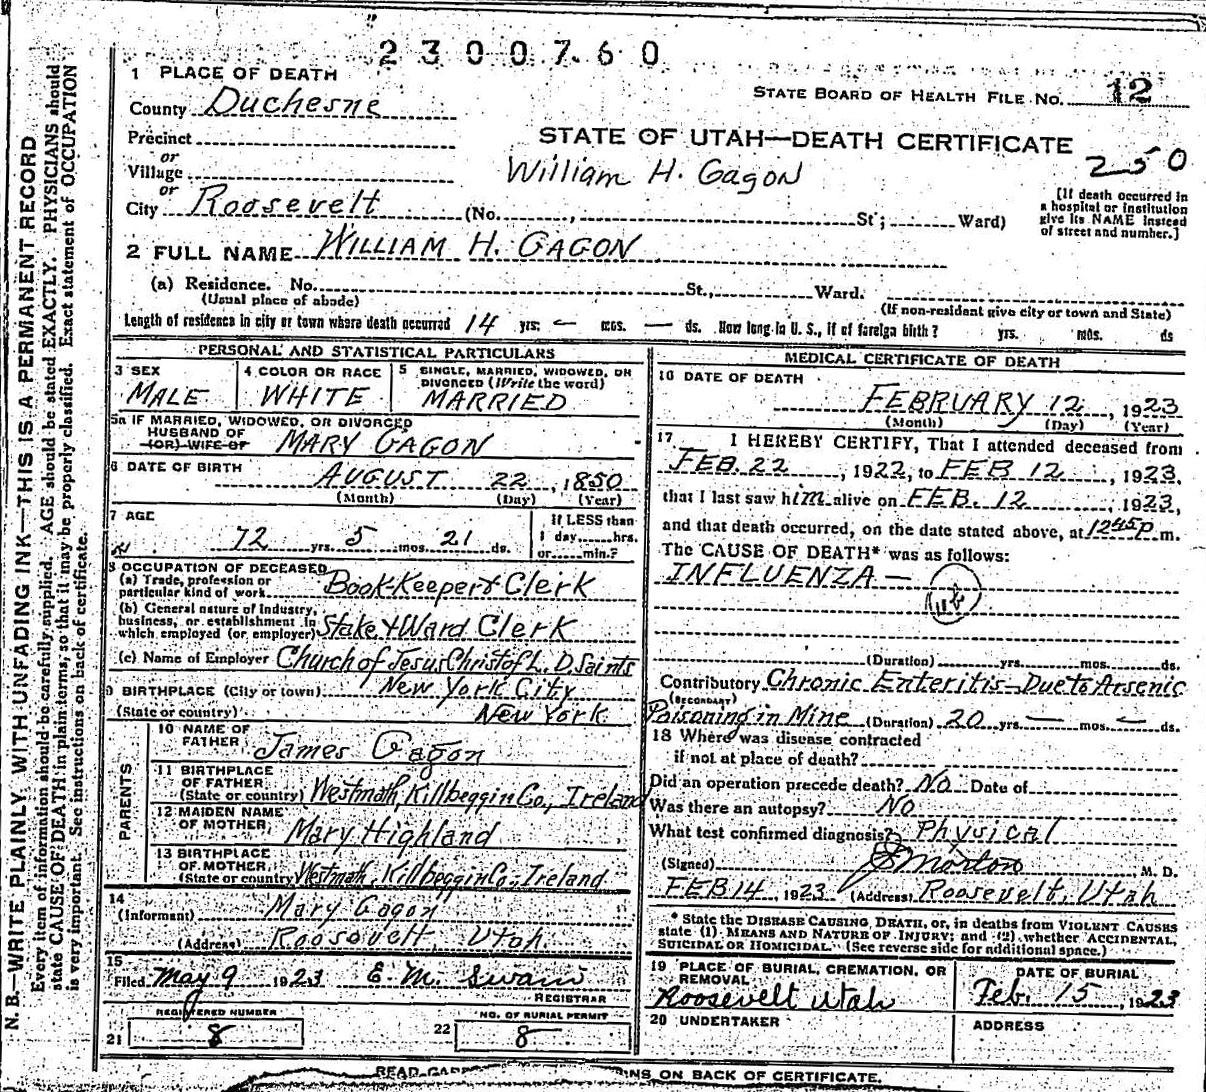 2300760
1 PLACE OF DEATH
STATE BOARD OF HEALTH FILE NO. 12
County Duchesne
STATE OF UTAH—DEATH CERTIFICATE
Precinct
250
or
Village
William H. Gagon
or
City Roosevelt (No. , St; Ward)
[If death occurred in a hospital or institution give its NAME instead of street and number.]
2 FULL NAME WILLIAM H. GAGON
(a) Residence. No. St., Ward.
(Usual place of abode)
(If non-resident give city or town and State)
Length of residence in city or town where death occurred 14 yrs. — mos. — ds. How long in U. S., if of foreign birth? yrs. mos. ds
PERSONAL AND STATISTICAL PARTICULARS
3 SEX
MALE
4 COLOR OR RACE
WHITE
5 SINGLE, MARRIED, WIDOWED, OR
DIVORCED (Write the word)
MARRIED
5a IF MARRIED, WIDOWED, OR DIVORCED
HUSBAND OF
(OR) WIFE OF MARY GAGON
6 DATE OF BIRTH AUGUST 22, 1850
(Month) (Day) (Year)
7 AGE
72 yrs. 5 mos. 21 ds.
If LESS than
1 day, hrs.
or min.?
8 OCCUPATION OF DECEASED
(a) Trade, profession or
particular kind of work Book-Keeper & Clerk
(b) General nature of Industry,
business, or establishment in
which employed (or employer) Stake & Ward Clerk
(c) Name of Employer Church of Jesus Christ of L. D. Saints
9 BIRTHPLACE (City or town) New York City
(State or country) New York
PARENTS
10 NAME OF
FATHER James Gagon
11 BIRTHPLACE
OF FATHER
(State or country) Westmath, Killbeggin Co., Ireland
12 MAIDEN NAME
OF MOTHER Mary Highland
13 BIRTHPLACE
OF MOTHER
(State or country) Westmath, Killbeggin Co., Ireland
14
(Informant) Mary Gagon
(Address) Roosovelt, Utah
15
Filed May 9 1923 E. M. Swain
REGISTRAR
REGISTERED NUMBER
21 8
NO. OF BURIAL PERMIT
22 8
MEDICAL CERTIFICATE OF DEATH
16 DATE OF DEATH
FEBRUARY 12, 1923
(Month) (Day) (Year)
17 I HEREBY CERTIFY, That I attended deceased from
FEB. 22, 1922, to FEB 12, 1923,
that I last saw him alive on FEB. 12, 1923,
and that death occurred, on the date stated above, at 1245 p. m.
The CAUSE OF DEATH* was as follows:
INFLUENZA —
(Duration) yrs. mos. ds.
Contributory Chronic Enteritis—Due to Arsenic
(SECONDARY)
Poisoning in Mine (Duration) 20 yrs. — mos. — ds.
18 Where was disease contracted
if not at place of death?
Did an operation precede death? No Date of
Was there an autopsy? No
What test confirmed diagnosis? Physical
(Signed) Morton M. D.
FEB 14, 1923 (Address) Roosevelt, Utah
* State the DISEASE CAUSING DEATH, or, in deaths from VIOLENT CAUSES
state (1) MEANS AND NATURE OF INJURY; and (2) whether ACCIDENTAL,
SUICIDAL OR HOMICIDAL. (See reverse side for additional space.)
19 PLACE OF BURIAL, CREMATION, OR
REMOVAL
Roosevelt Utah
DATE OF BURIAL
Feb. 15, 1923
20 UNDERTAKER
ADDRESS
ON BACK OF CERTIFICATE.
N. B.—WRITE PLAINLY, WITH UNFADING INK—THIS IS A PERMANENT RECORD
Every item of information should be carefully supplied. AGE should be stated EXACTLY. PHYSICIANS should
state CAUSE OF DEATH in plain terms, so that it may be properly classified. Exact statement of OCCUPATION
is very important. See instructions on back of certificate.